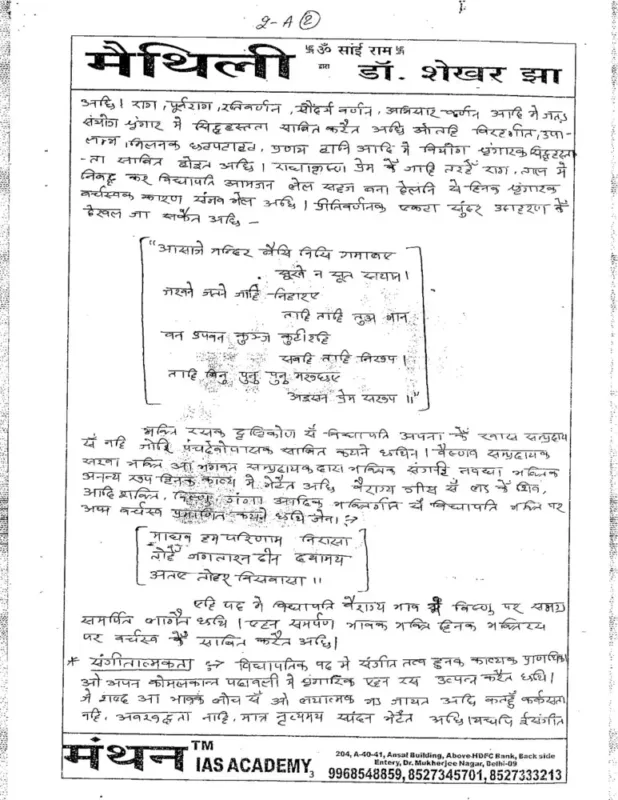 2-A (2)
मैथिली
卐 ॐ सांई राम 卐
द्वारा
डॉ. शेखर झा
अछि। राग, पूर्वराग, रतिवर्णन, सौंदर्य वर्णन, अभिसार वर्णन आदि मे जतए
संयोग शृंगार मे सिद्धहस्तता साबित करैत अछि ओतहि विरहगीत, उपा-
लम्भ, मिलनक छटपटाहट, प्रणय आदि मे वियोग शृंगारक सिद्धहस्त
-ता साबित होइत अछि। राधाकृष्ण प्रेम कें जाहि तरहें राग, ताल मे
निबद्ध कर विद्यापति आमजन लेल सहज बना देलनि से हिनक शृंगारक
वर्चस्वक कारण संभव भेल अछि। प्रीतिवर्णनक एकटा सुंदर उदाहरण कें
देखल जा सकैत अछि –
"आसाञे मन्दिर बैसि निसि गमाबए
सुखे न सूत सयान।
जखने जतने जाहि निहारए
ताहि ताहि तुअ भान
वन उपवन कुञ्ज कुटीरहि
सबहि ताहि निरूप।
ताहि बिनु पुनु पुनु मरुछए
अइसन प्रेम सरूप॥"
भक्ति रसक दृष्टिकोण सँ विद्यापति अपना कें खास सम्प्रदाय
सँ नहि जोड़ि पंचदेवोपासक साबित कयने छथिन। वैष्णव सम्प्रदायक
सख्य भक्ति आ भागवत सम्प्रदायक दास्य भक्तिक संगहि नवधा भक्तिक
अनन्य रूप हिनक काव्य मे भेटैत अछि। वैराग्य गीत सँ लऽ कें शिव,
आदि शक्ति, विष्णु, गंगा आदिक भक्तिगीत सँ विद्यापति भक्ति पर
अपन वर्चस्व प्रमाणित कयने छथि जेना :→
माधव हम परिणाम निरासा
तोहें जगतारन दीन दयामय
अतए तोहर विसवासा॥
एहि पद मे विद्यापति वैराग्य भाव सँ विष्णु पर समग्र
समर्पित लागैत छथि। एहन समर्पण भावक भक्ति हिनक भक्तिरस
पर वर्चस्व कें साबित करैत अछि।
* संगीतात्मकता :→ विद्यापतिक पद मे संगीत तत्व हुनक काव्यक प्राण थिक।
ओ अपन कोमलकान्त पदावली मे शृंगारिक एहन रस उत्पन्न करैत छथि।
जे शब्द आ भावक लोच सँ ओ लयात्मक भऽ जायत अछि कतहुँ कर्कसता
नहि, अवरुद्धता नहि, मात्र नृत्यमय स्पंदन भेटैत अछि। यद्यपि ई संगीत
मंथन™
IAS ACADEMY
3
204, A-40-41, Ansal Building, Above-HDFC Bank, Back side
Entery, Dr. Mukherjee Nagar, Delhi-09
9968548859, 8527345701, 8527333213